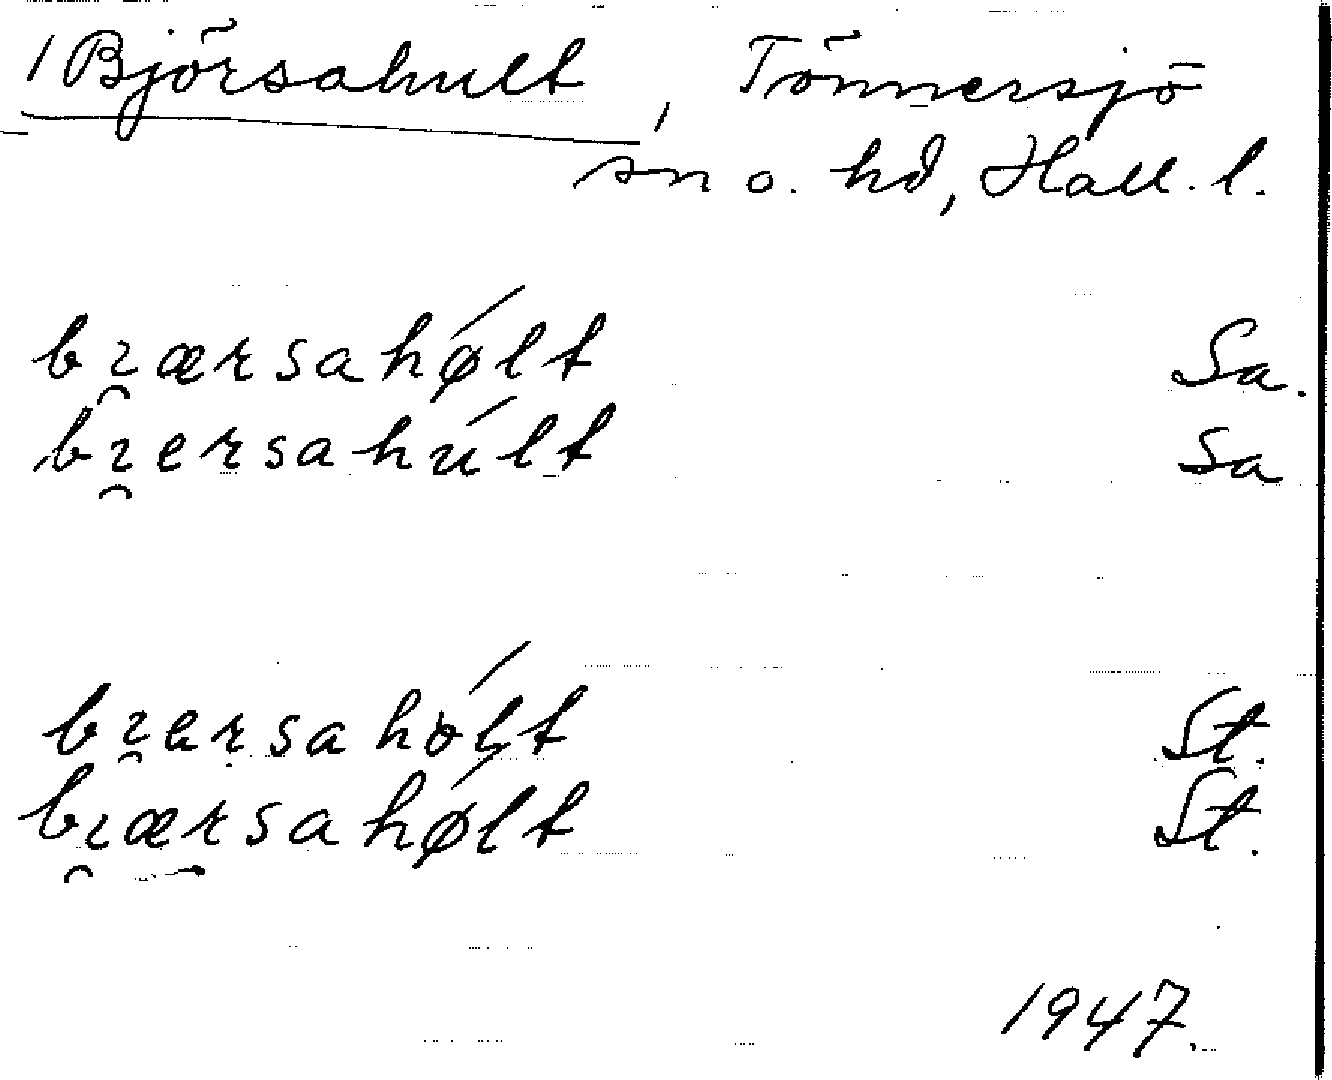 / Björsahult, Tönnersjö
sn o. hd, Hall. l.
bɿ̯ærsahǿlt Sa.
bɿ̯ersahúlt Sa
bɿ̯ersahólt St.
bɿ̯ærsahǿlt St.
1947.